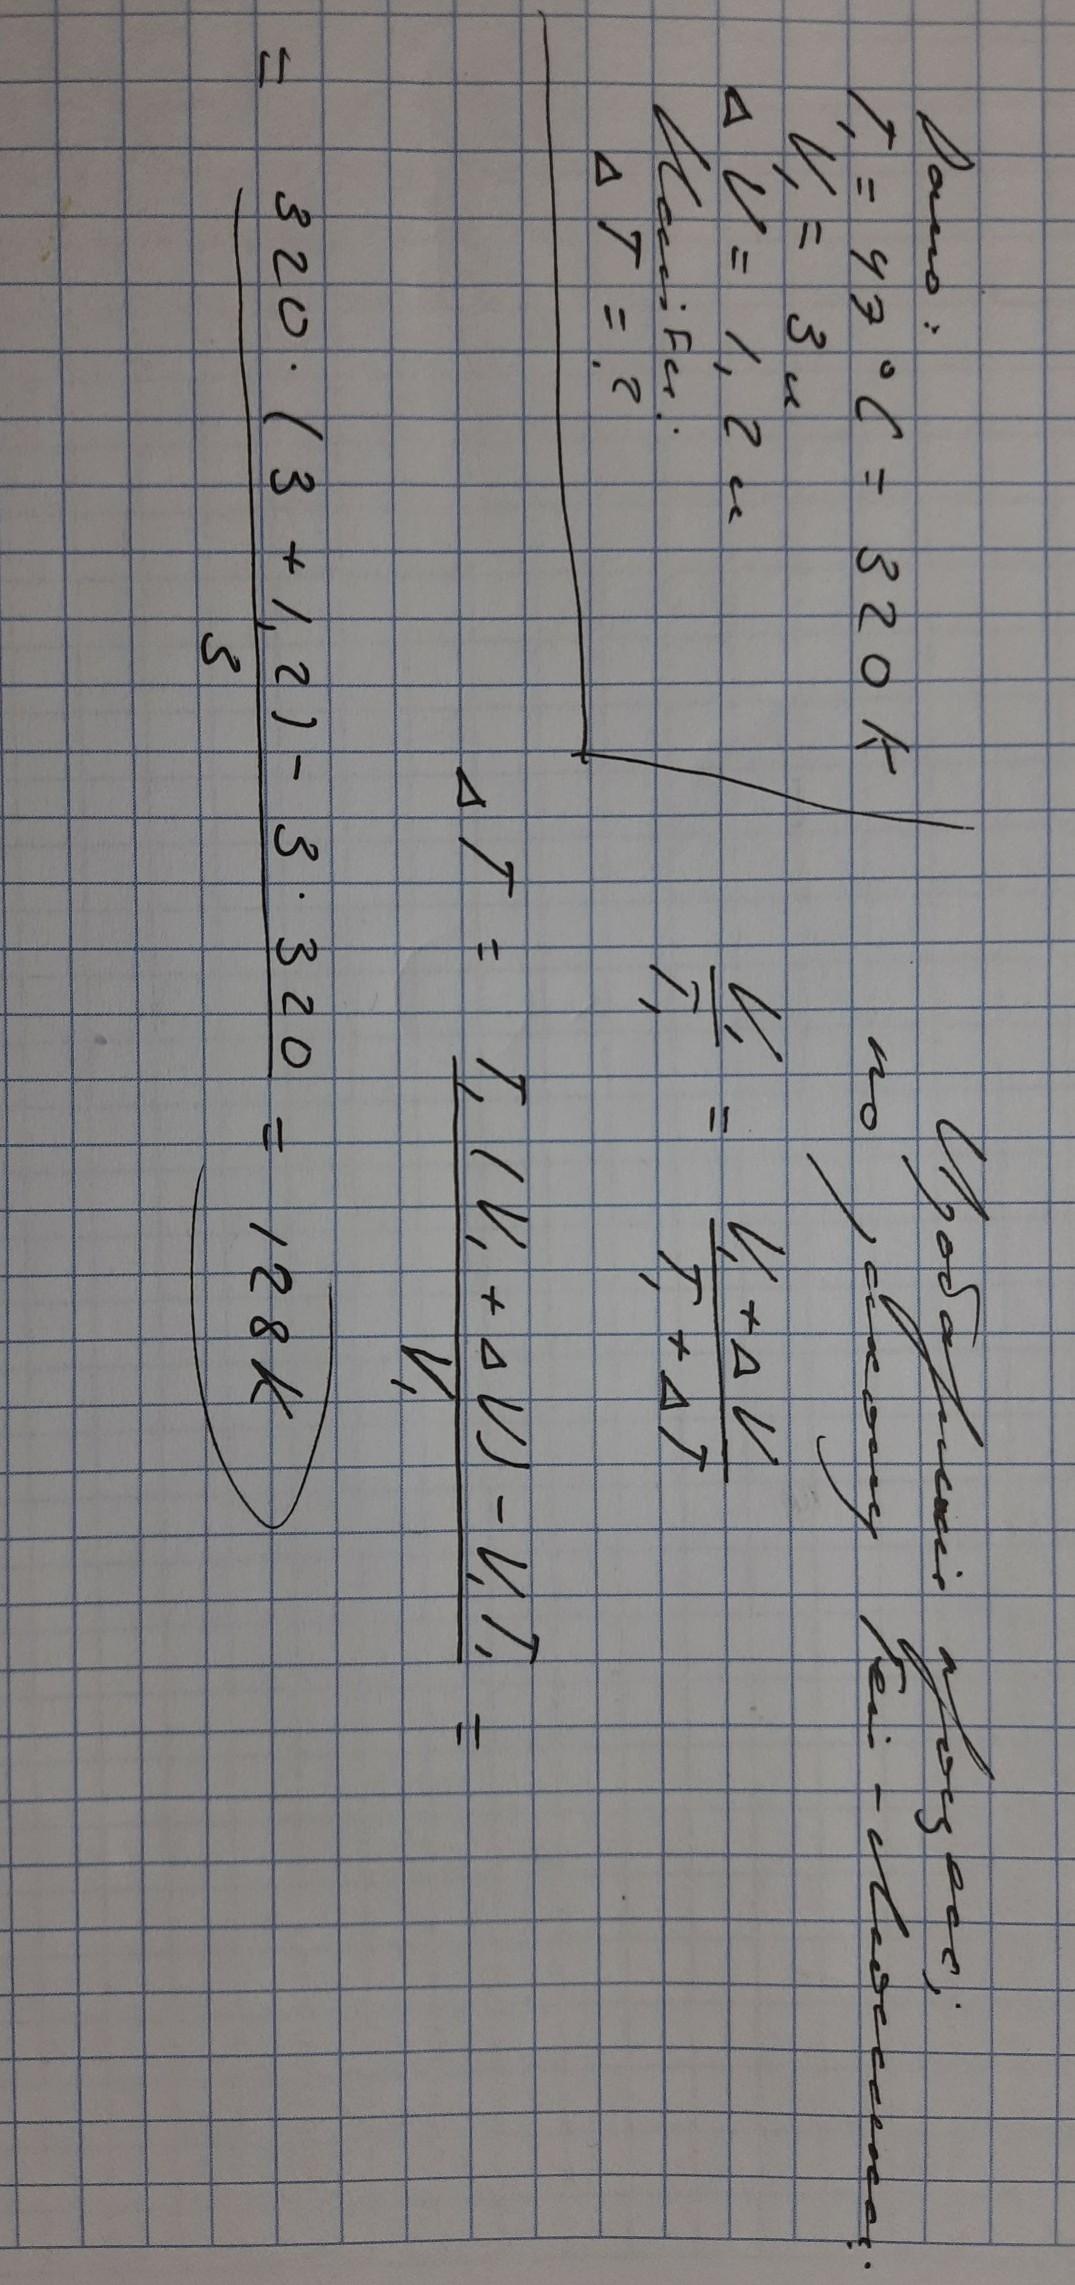 Дано:
T₁ = 47 °C = 320 K
V₁ = 3 л
ΔV = 1,2 л
Найти:
ΔT = ?
Изобарный процесс;
по закону Гей-Люссака:
V₁/T₁ = (V₁ + ΔV)/(T₁ + ΔT)
ΔT = (T₁(V₁ + ΔV) - V₁T₁)/V₁ =
= (320 · (3 + 1,2) - 3 · 320)/3 = 128 K